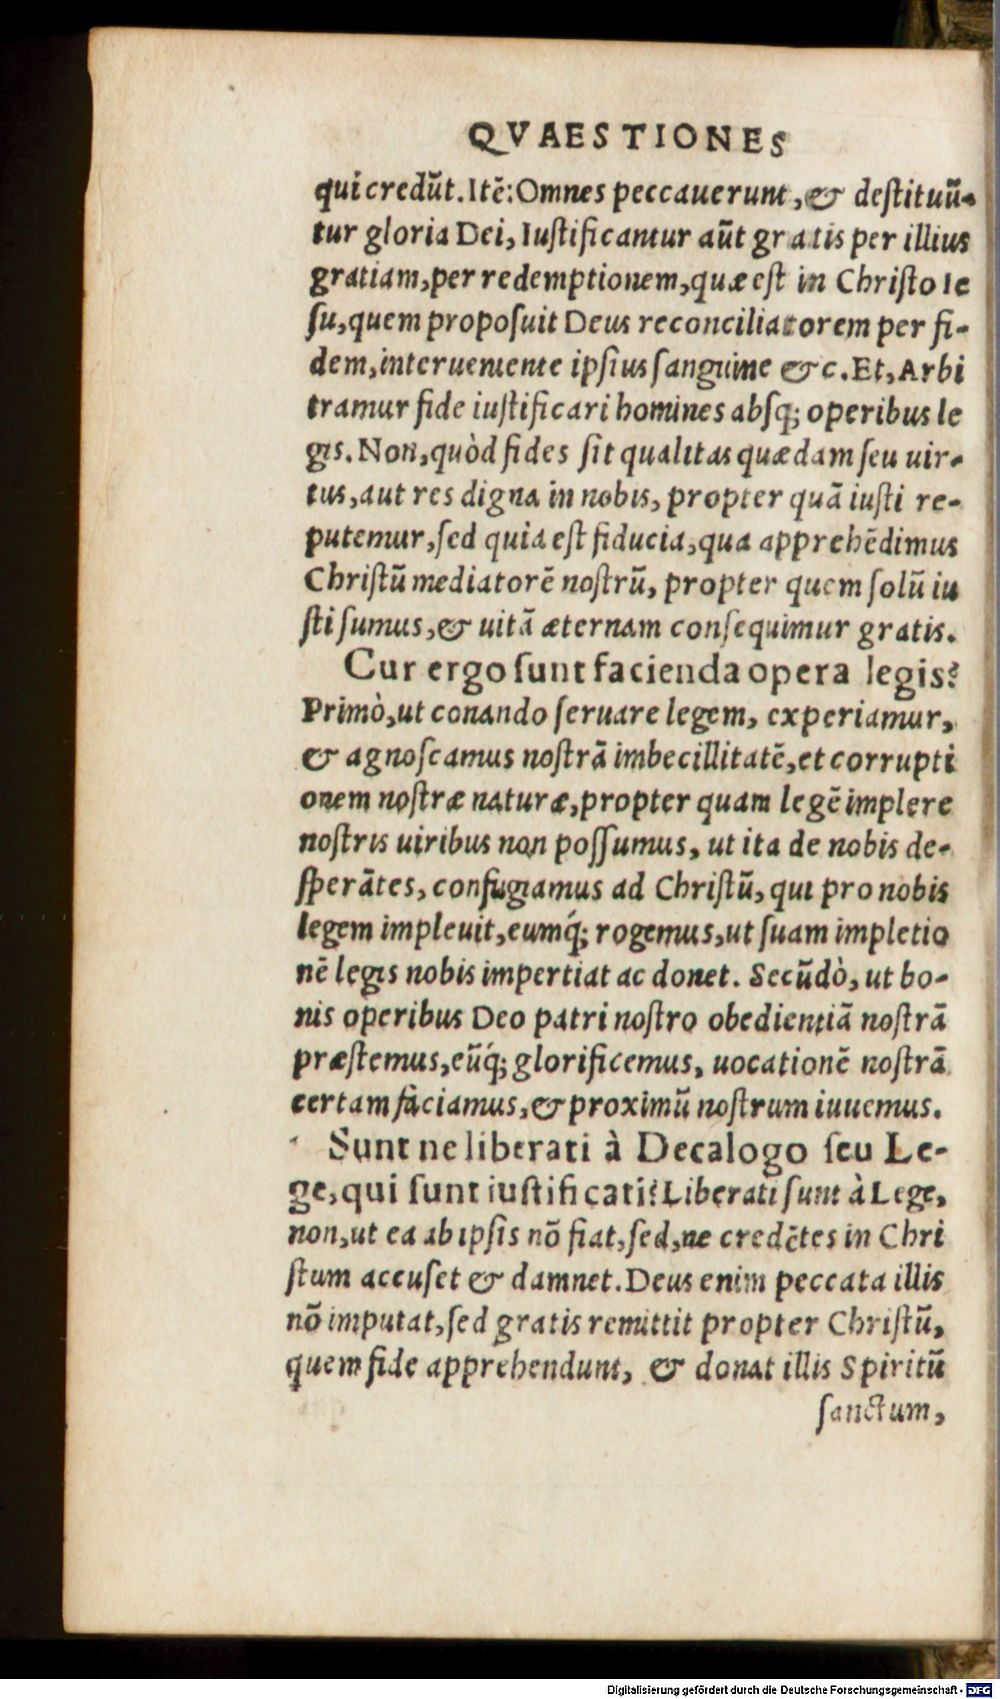 QVAESTIONES
qui credũt. Itẽ: Omnes peccauerunt, & deſtituũ-
tur gloria Dei, Iuſtificantur aũt gratis per illius
gratiam, per redemptionem, quæ eſt in Chriſto Ie
ſu, quem propoſuit Deus reconciliatorem per fi-
dem, interueniente ipſius ſanguine &c. Et, Arbi
tramur fide iuſtificari homines abſq; operibus le
gis. Non, quòd fides ſit qualitas quædam ſeu uir-
tus, aut res digna in nobis, propter quã iuſti re-
putemur, ſed quia eſt fiducia, qua apprehẽdimus
Chriſtũ mediatorẽ noſtrũ, propter quem ſolũ iu
ſti ſumus, & uitã æternam conſequimur gratis.
Cur ergo ſunt facienda opera legis?
Primò, ut conando ſeruare legem, experiamur,
& agnoſcamus noſtrã imbecillitatẽ, et corrupti
onem noſtræ naturæ, propter quam legẽ implere
noſtris uiribus non poſſumus, ut ita de nobis de-
ſperãtes, confugiamus ad Chriſtũ, qui pro nobis
legem impleuit, eumq́; rogemus, ut ſuam impletio
nẽ legis nobis impertiat ac donet. Secũdò, ut bo-
nis operibus Deo patri noſtro obedientiã noſtrã
præſtemus, eũq́; glorificemus, uocationẽ noſtrã
certam faciamus, & proximũ noſtrum iuuemus.
Sunt ne liberati à Decalogo ſeu Le-
ge, qui ſunt iuſtificati? Liberati ſunt à Lege,
non, ut ea ab ipſis nõ fiat, ſed, ne credẽtes in Chri
ſtum accuſet & damnet. Deus enim peccata illis
nõ imputat, ſed gratis remittit propter Chriſtũ,
quem fide apprehendunt, & donat illis Spiritũ
ſanctum,
Digitalisierung gefördert durch die Deutsche Forschungsgemeinschaft - DFG